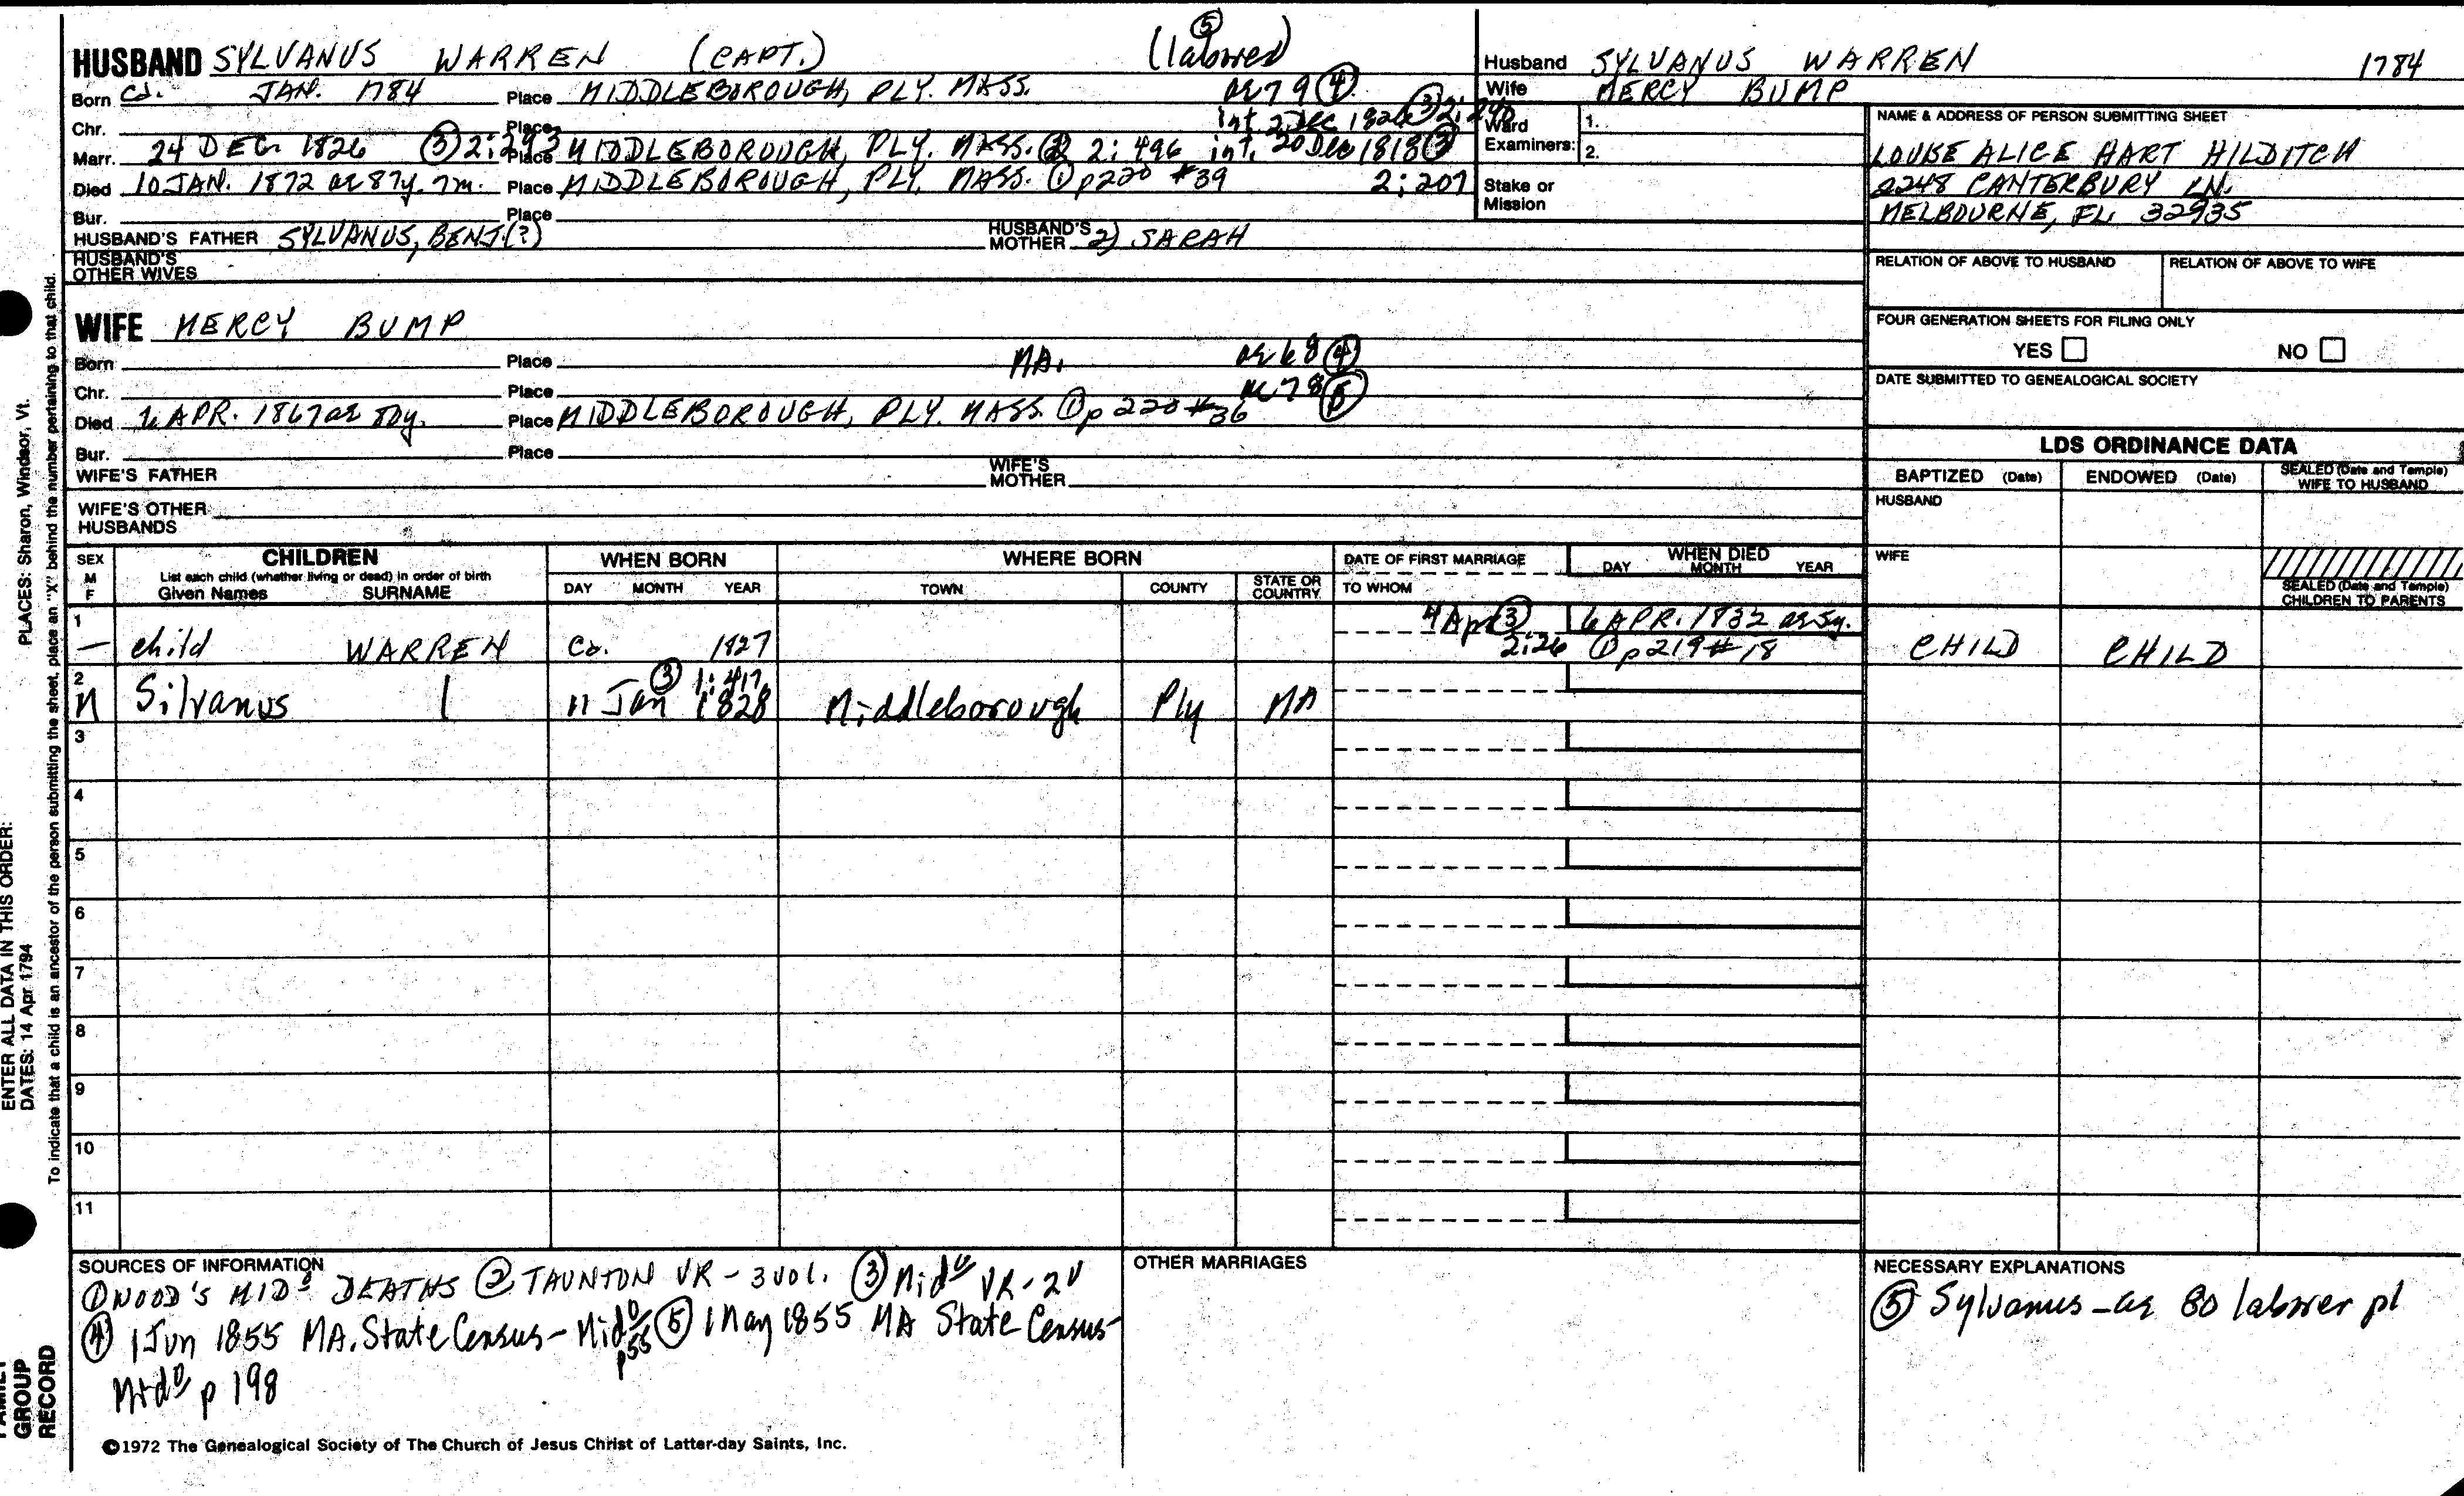 HUSBAND SYLVANUS WARREN (CAPT.) (labored) ⑤
Born Cd. JAN. 1784 Place MIDDLEBOROUGH, PLY. MASS. ae 79 ④
Chr. Place int 2 Dec 1826 ③ 2:290
Marr. 24 DEC. 1826 ③ 2:293 Place MIDDLEBOROUGH, PLY. MASS. ② 2:496 int. 20 Dec 1818 ③
Died 10 JAN. 1872 ae 87y. 7m. Place MIDDLEBOROUGH, PLY. MASS. ① p220 #39 2:207
Bur. Place
HUSBAND'S FATHER SYLVANUS, BENJ.(?) HUSBAND'S MOTHER 2) SARAH
HUSBAND'S OTHER WIVES
WIFE MERCY BUMP
Born Place MA. ae 68 ④
Chr. Place ae 78 ⑤
Died APR. 1867 ae 80y. Place MIDDLEBOROUGH, PLY. MASS. ① p 220 #36
Bur. Place
WIFE'S FATHER WIFE'S MOTHER
WIFE'S OTHER HUSBANDS
Husband SYLVANUS WARREN 1784
Wife MERCY BUMP
Ward Examiners: 1. 2.
Stake or Mission
NAME & ADDRESS OF PERSON SUBMITTING SHEET
LOUISE ALICE HART HILDITCH
2248 CANTERBURY LN.
MELBOURNE, FL. 32935
RELATION OF ABOVE TO HUSBAND RELATION OF ABOVE TO WIFE
FOUR GENERATION SHEETS FOR FILING ONLY
YES NO
DATE SUBMITTED TO GENEALOGICAL SOCIETY
LDS ORDINANCE DATA
BAPTIZED (Date) ENDOWED (Date) SEALED (Date and Temple) WIFE TO HUSBAND
HUSBAND
WIFE
SEALED (Date and Temple) CHILDREN TO PARENTS
SEX M F CHILDREN WHEN BORN WHERE BORN DATE OF FIRST MARRIAGE WHEN DIED
List each child (whether living or dead) in order of birth
Given Names SURNAME DAY MONTH YEAR TOWN COUNTY STATE OR COUNTRY TO WHOM DAY MONTH YEAR
1 4 Apr ③ 6 APR. 1832 ae 5y.
— child WARREN Ca. 1827 2:26 ① p219 #18 CHILD CHILD
2 ③ 1:417
M Silvanus | 11 Jan 1828 Middleborough Ply MA
3
4
5
6
7
8
9
10
11
SOURCES OF INFORMATION
① WOOD'S MIDᵒ DEATHS ② TAUNTON VR - 3 VOl. ③ Midᵒ VR - 2V
④ 1 Jun 1855 MA. State Census - Midᵒ p55 ⑤ 1 May 1855 MA State Census -
Midᵒ p 198
OTHER MARRIAGES
NECESSARY EXPLANATIONS
⑤ Sylvanus - ae 80 laborer pl
©1972 The Genealogical Society of The Church of Jesus Christ of Latter-day Saints, Inc.
ENTER ALL DATA IN THIS ORDER:
DATES: 14 Apr 1794 PLACES: Sharon, Windsor, Vt.
To indicate that a child is an ancestor of the person submitting the sheet, place an "X" behind the number pertaining to that child.
GROUP
RECORD